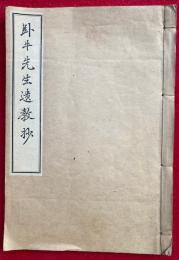 卧牛先生遺教抄